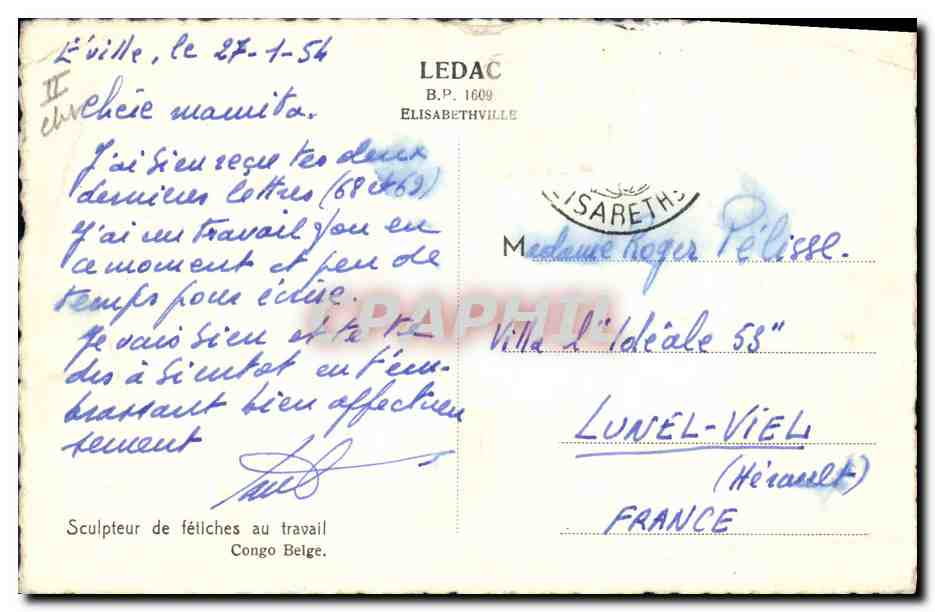 E'ville, le 27-1-54
Chère mamita.
J'ai bien reçu tes deux
dernières lettres (68 et 69)
J'ai un travail fou en
ce moment et peu de
temps pour écrire.
Je vais bien et te
dis à bientôt en t'em-
brassant bien affectueu
sement
Sculpteur de fétiches au travail
Congo Belge.
LEDAC
B.P. 1609
ELISABETHVILLE
ISABETH
Madame Roger Pélisse.
Villa l'"Idéale 53"
LUNEL-VIEL
(Hérault)
FRANCE
CPAPHIL